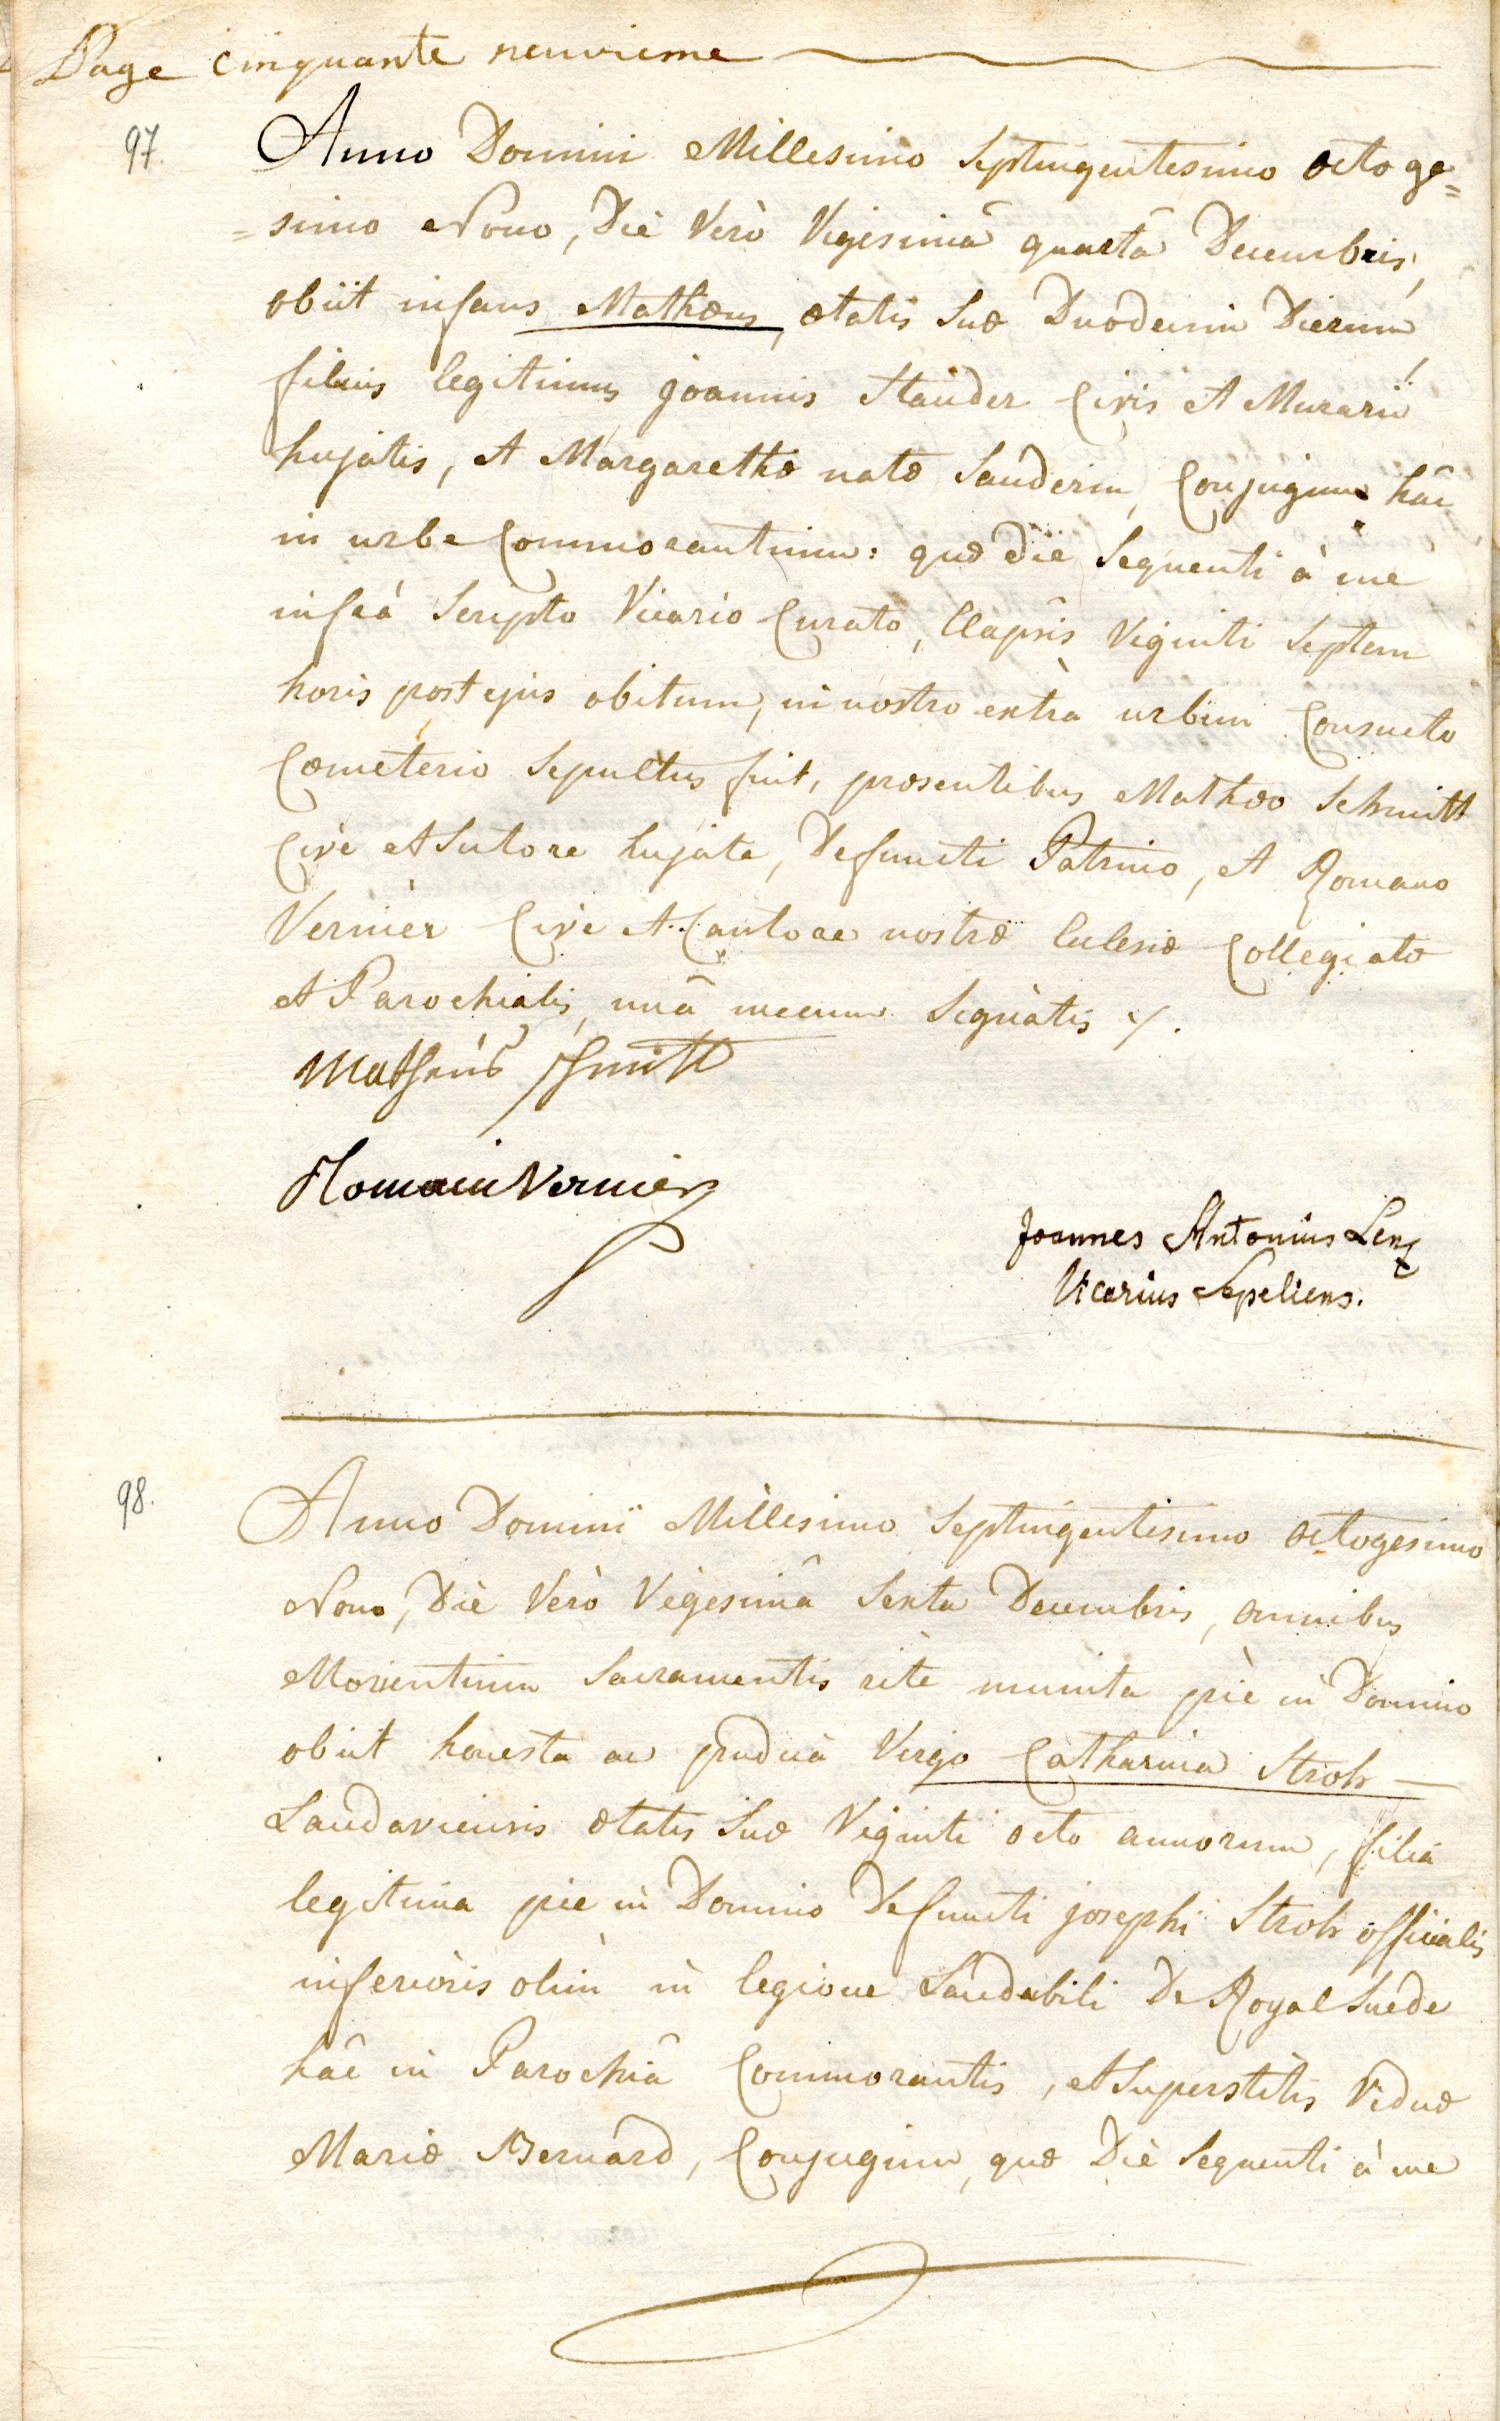 Page cinquante neuvieme
97. Anno Domini Millesimo Septingentesimo octoge=
=simo Nono, Die Verò Vigesimâ quartâ Decembris,
obiit infans Mathæus, ætatis suæ Duodecim Dierum,
filius legitimus joannis Stauder Civis et Murarii
hujatis, et Margarethæ natæ Sauderin, Conjugum hâc
in urbe Commorantium: quæ die Sequenti à me
infrà Scripto Vicario Curato, Elapsis Viginti Septem
horis post ejus obitum, in nostro extra urbem Consueto
Cœmeterio Sepultus fuit, præsentibus Mathæo Schmitt
Cive et Sutore hujate, Defuncti Patrino, et Romano
Vernier Cive et Cantore nostræ Eclesiæ Collegiatæ
et Parochialis, unâ mecum Signatis ⁒.
Matheus Schmitt
Romain Vernier
Joannes Antonius Lenz
Vicarius Sepeliens.
98. Anno Domini Millesimo Septingentesimo octogesimo
Nono, Die Verò Vigesimâ Sexta Decembris, omnibus
Morientium Sacramentis ritè munita piè in Domino
obiit honesta ac pudica Virgo Catharina Stroh
Landaviensis ætatis suæ Viginti octo annorum, filia
legitima pie in Domino Defuncti josephi Stroh officialis
inferioris olim in legione Laudabili De Royal Suede
hâc in Parochiâ Commorantis, et Superstitis Viduæ
Mariæ Bernard, Conjugum, quæ Die Sequenti à me